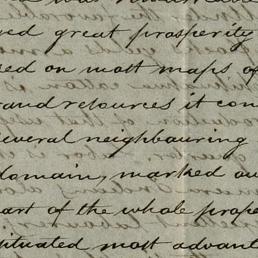 ed great prosperity
ed on most maps of
and resources it con
several neighbouring
domain, marked ou
art of the whole prope
situated most advant